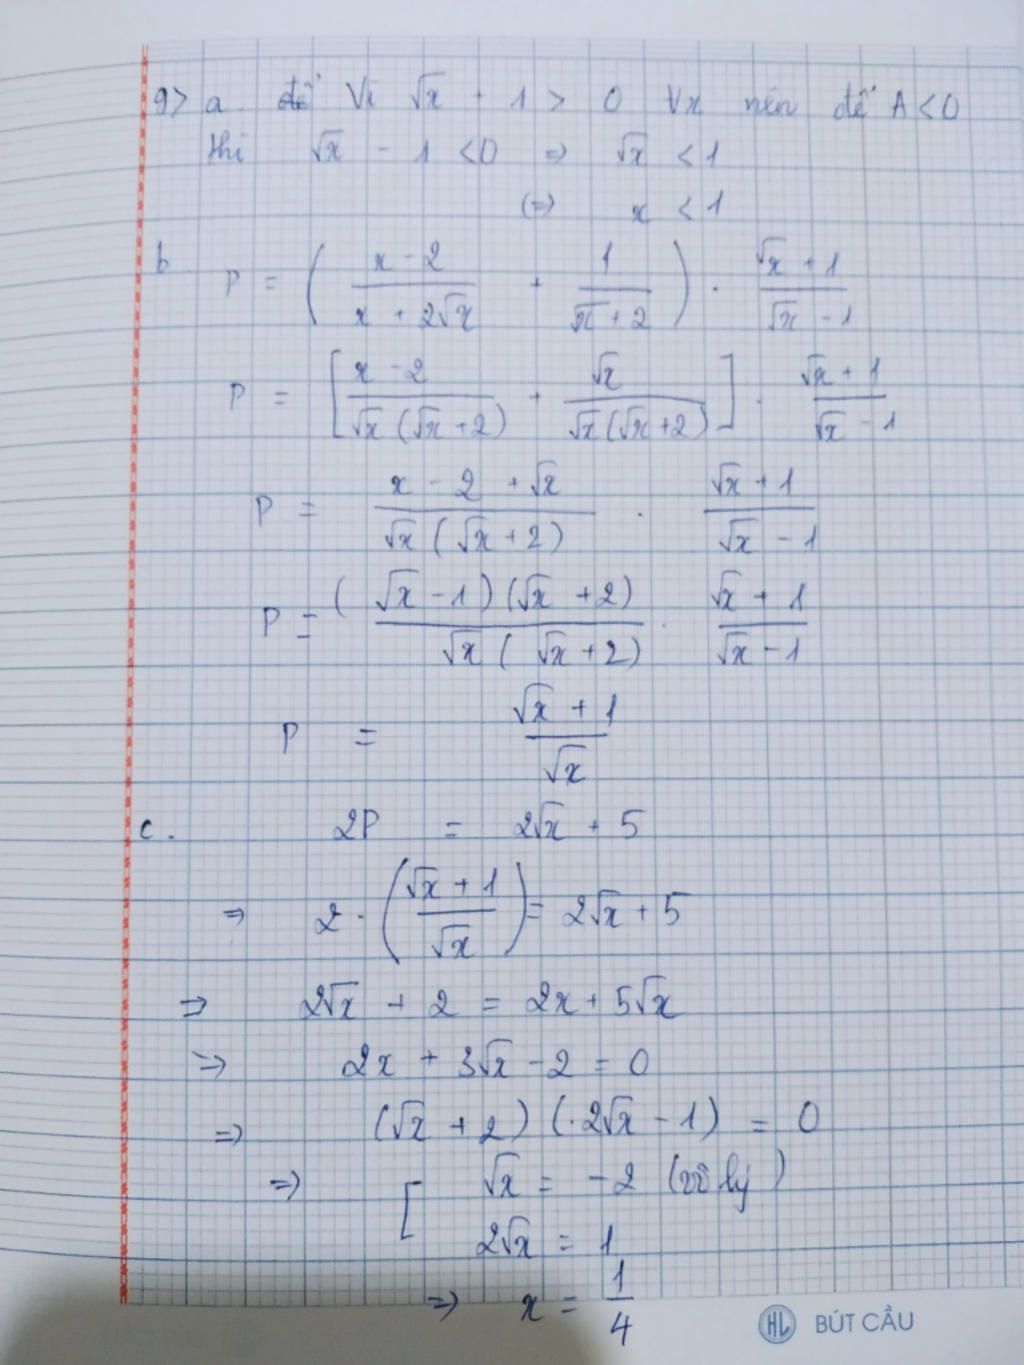 9> a. Vì √x + 1 > 0 ∀x nên để A < 0
thì √x - 1 < 0 => √x < 1
(=) x < 1
b. P = ( (x - 2)/(x + 2√x) + 1/(√x + 2) ) . (√x + 1)/(√x - 1)
P = [ (x - 2)/(√x (√x + 2)) + √x/(√x (√x + 2)) ] . (√x + 1)/(√x - 1)
P = (x - 2 + √x)/(√x (√x + 2)) . (√x + 1)/(√x - 1)
P = ((√x - 1)(√x + 2))/(√x (√x + 2)) . (√x + 1)/(√x - 1)
P = (√x + 1)/√x
c. 2P = 2√x + 5
=> 2 . ((√x + 1)/√x) = 2√x + 5
=> 2√x + 2 = 2x + 5√x
=> 2x + 3√x - 2 = 0
=> (√x + 2) (2√x - 1) = 0
=> [ √x = -2 (vô lý)
2√x = 1
=> x = 1/4
HL BÚT CẦU